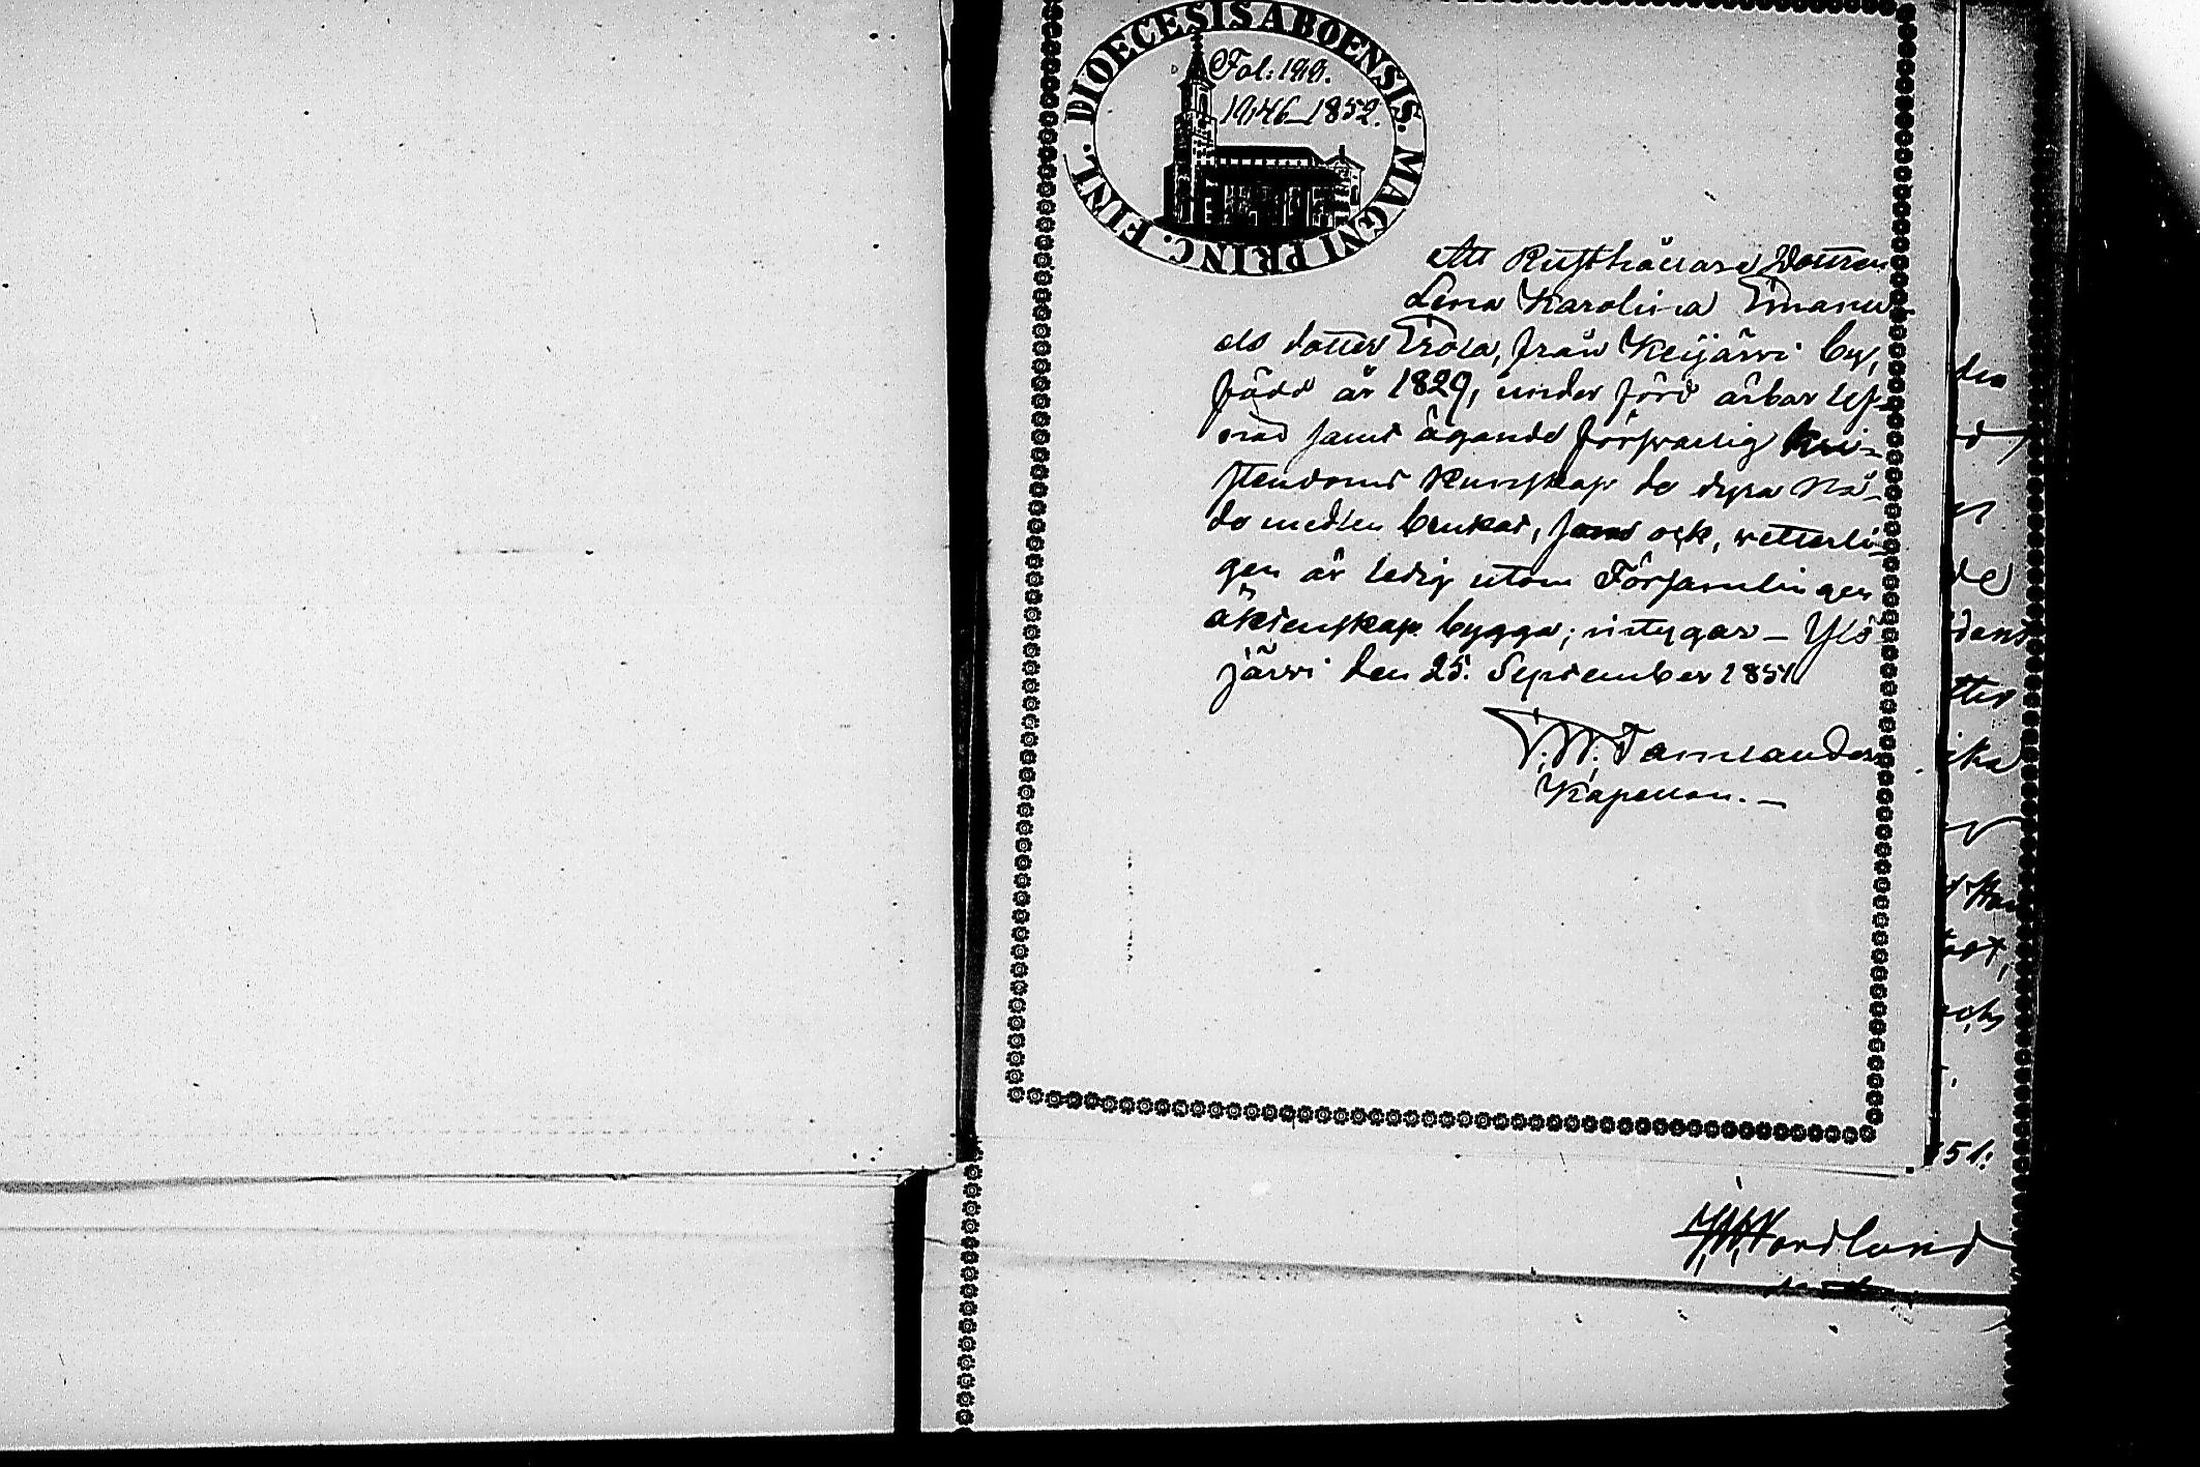 DIOECESIS ABOENSIS. MAGNI PRINC. FINL.
Fol: 190.
1846_1852.
Att Rusthållare Dottren
Lena Karolina Emanu
els dotter Erola, från Keijärvi by,
född år 1829, under förd ärbar lef-
nad samt ägande försvarlig Kri-
stendoms Kunskap de dyra Nå-
de medlen brukat, samt ock, vetterli
gen är ledig utom Församlingen
äktenskap bygga; intygar _ Ylö
järvi den 25. September 1851
Tamlander
Kapellan. _
den
de
dens
tter
ika
och
51.
Nordlund